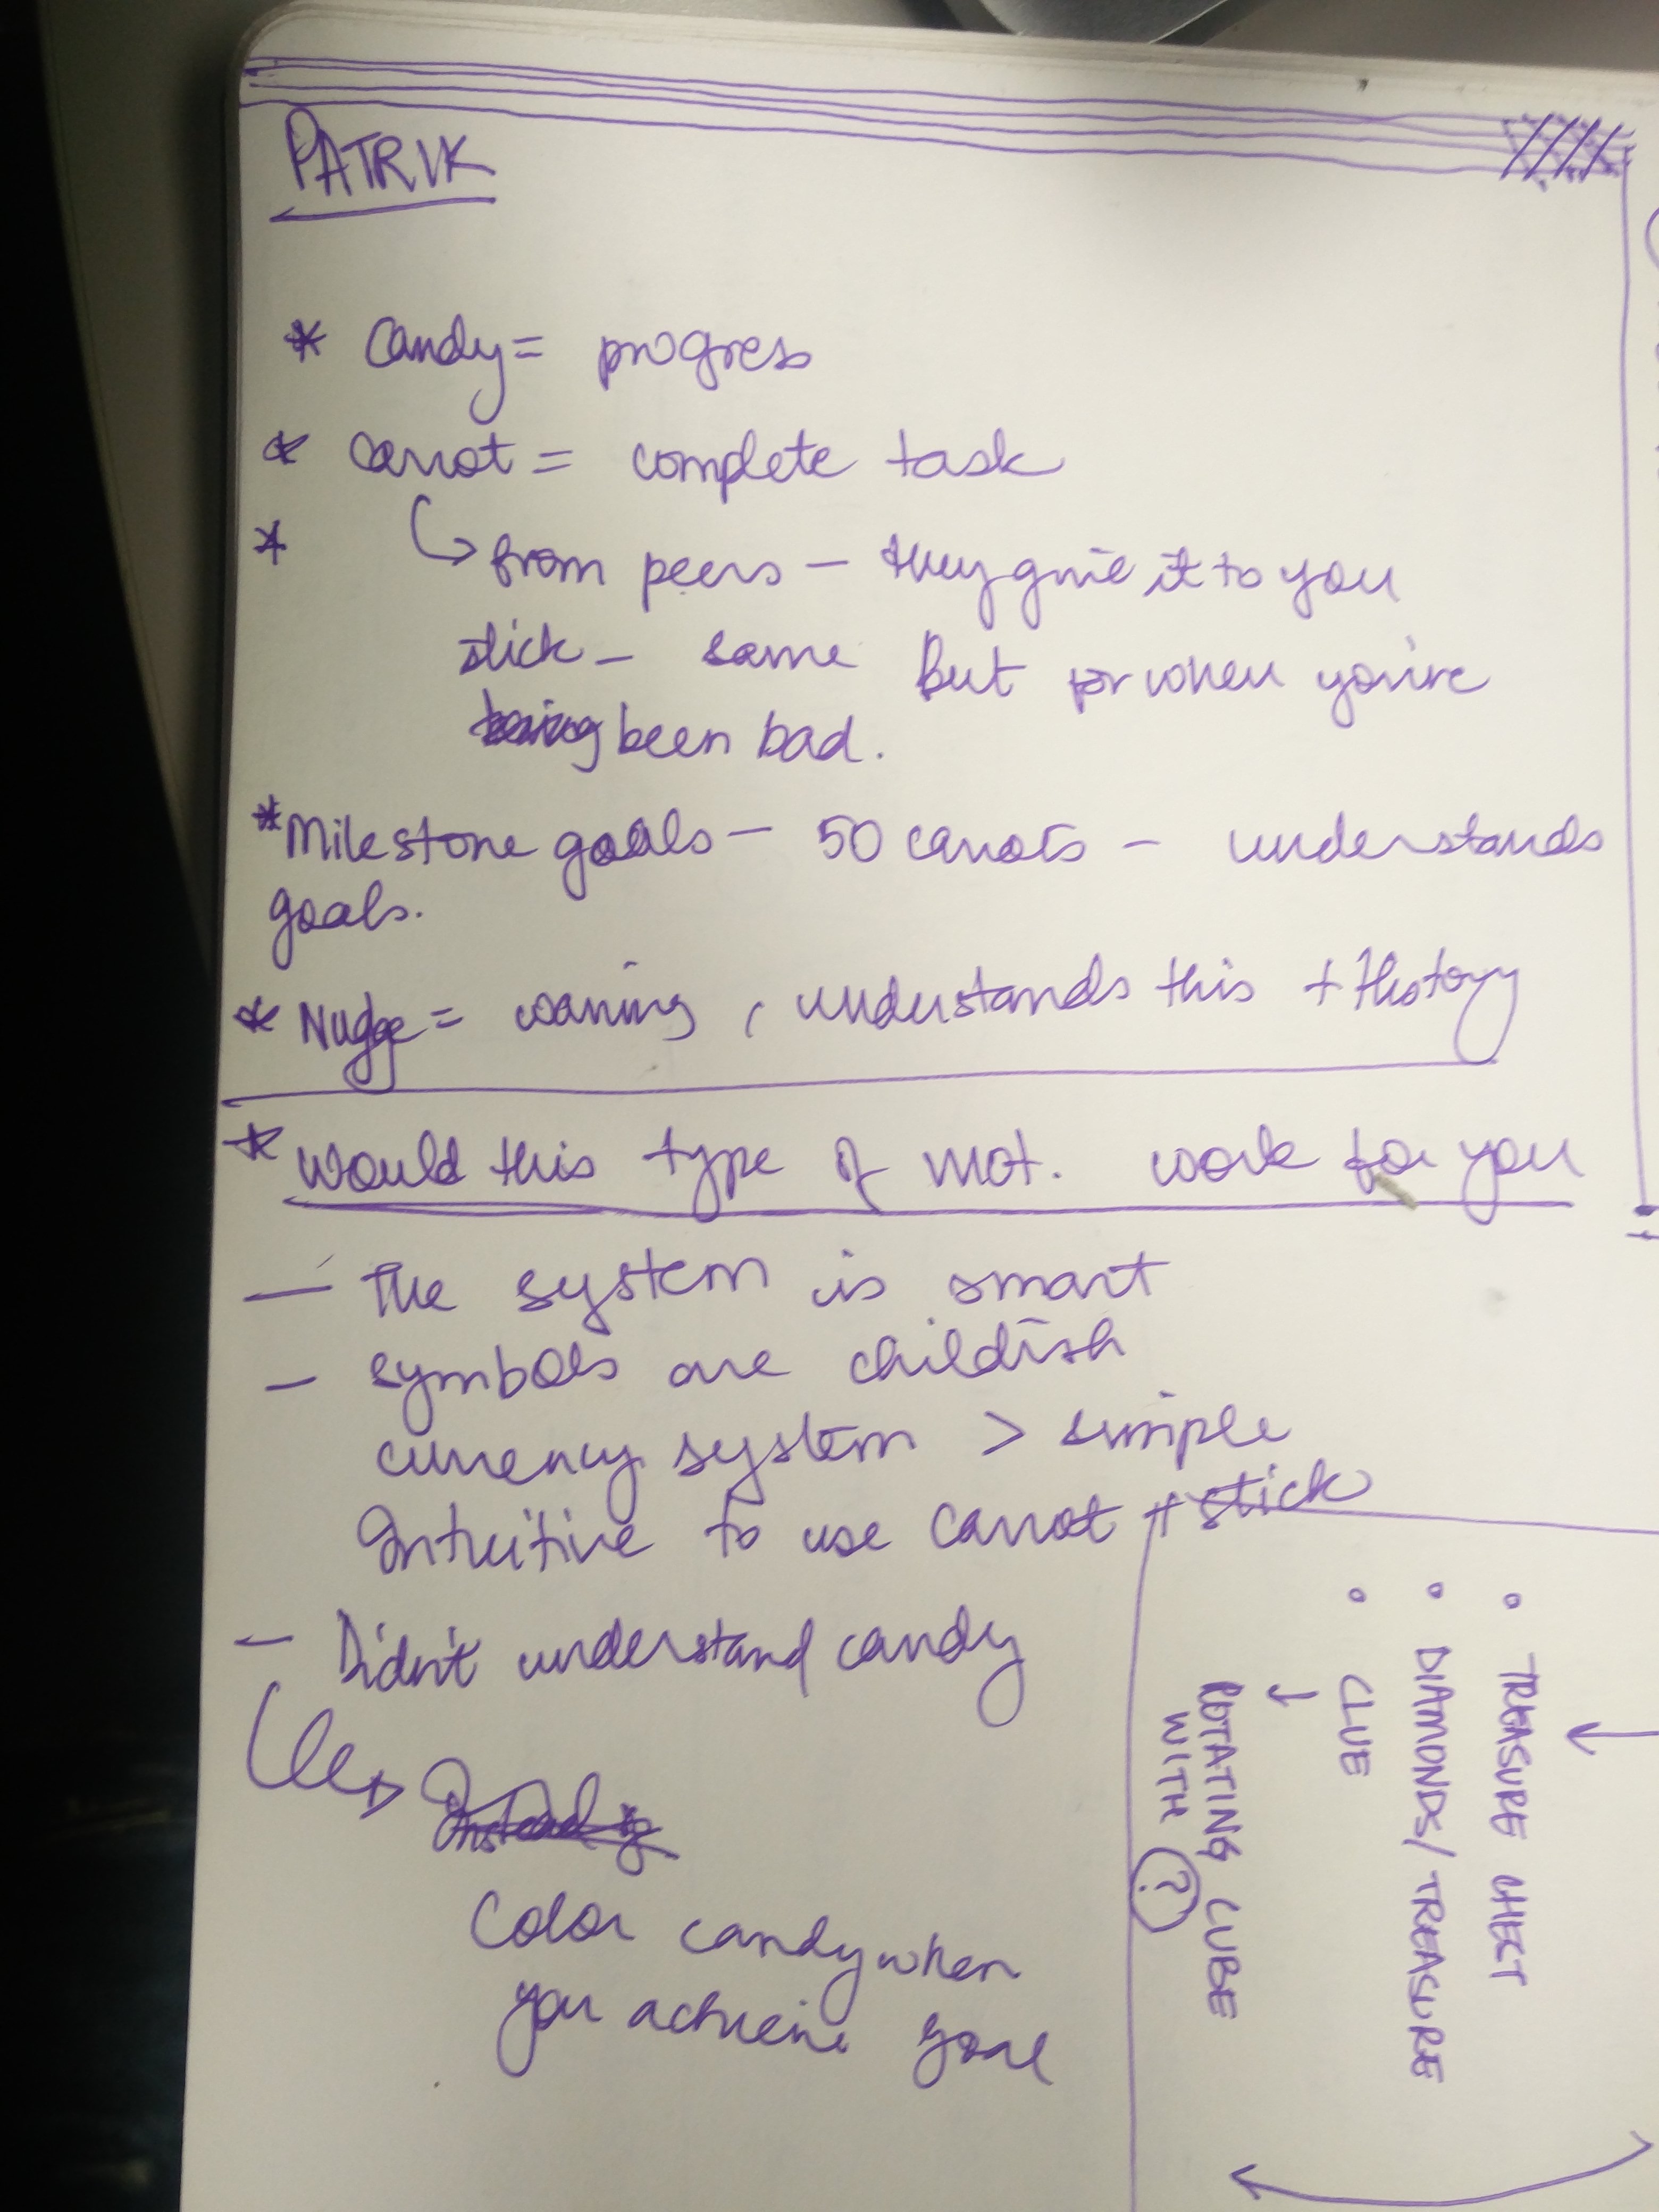 PATRIK
* Candy = progress
* Carrot = complete task
* ↳ from peers – they give it to you
stick – same but for when you're
being been bad.
* Milestone goals – 50 carrots – understands
goals.
* Nugge = warning, understands this + History
* Would this type of mot. work for you
– The system is smart
– symbols are childish
currency system > simple
Intuitive to use carrot + stick
– Didn't understand candy
Color candy when
you achieve goal
• TREASURE CHECT
• DIAMONDS/TREASURE
• CLUE
ROTATING CUBE
WITH ?